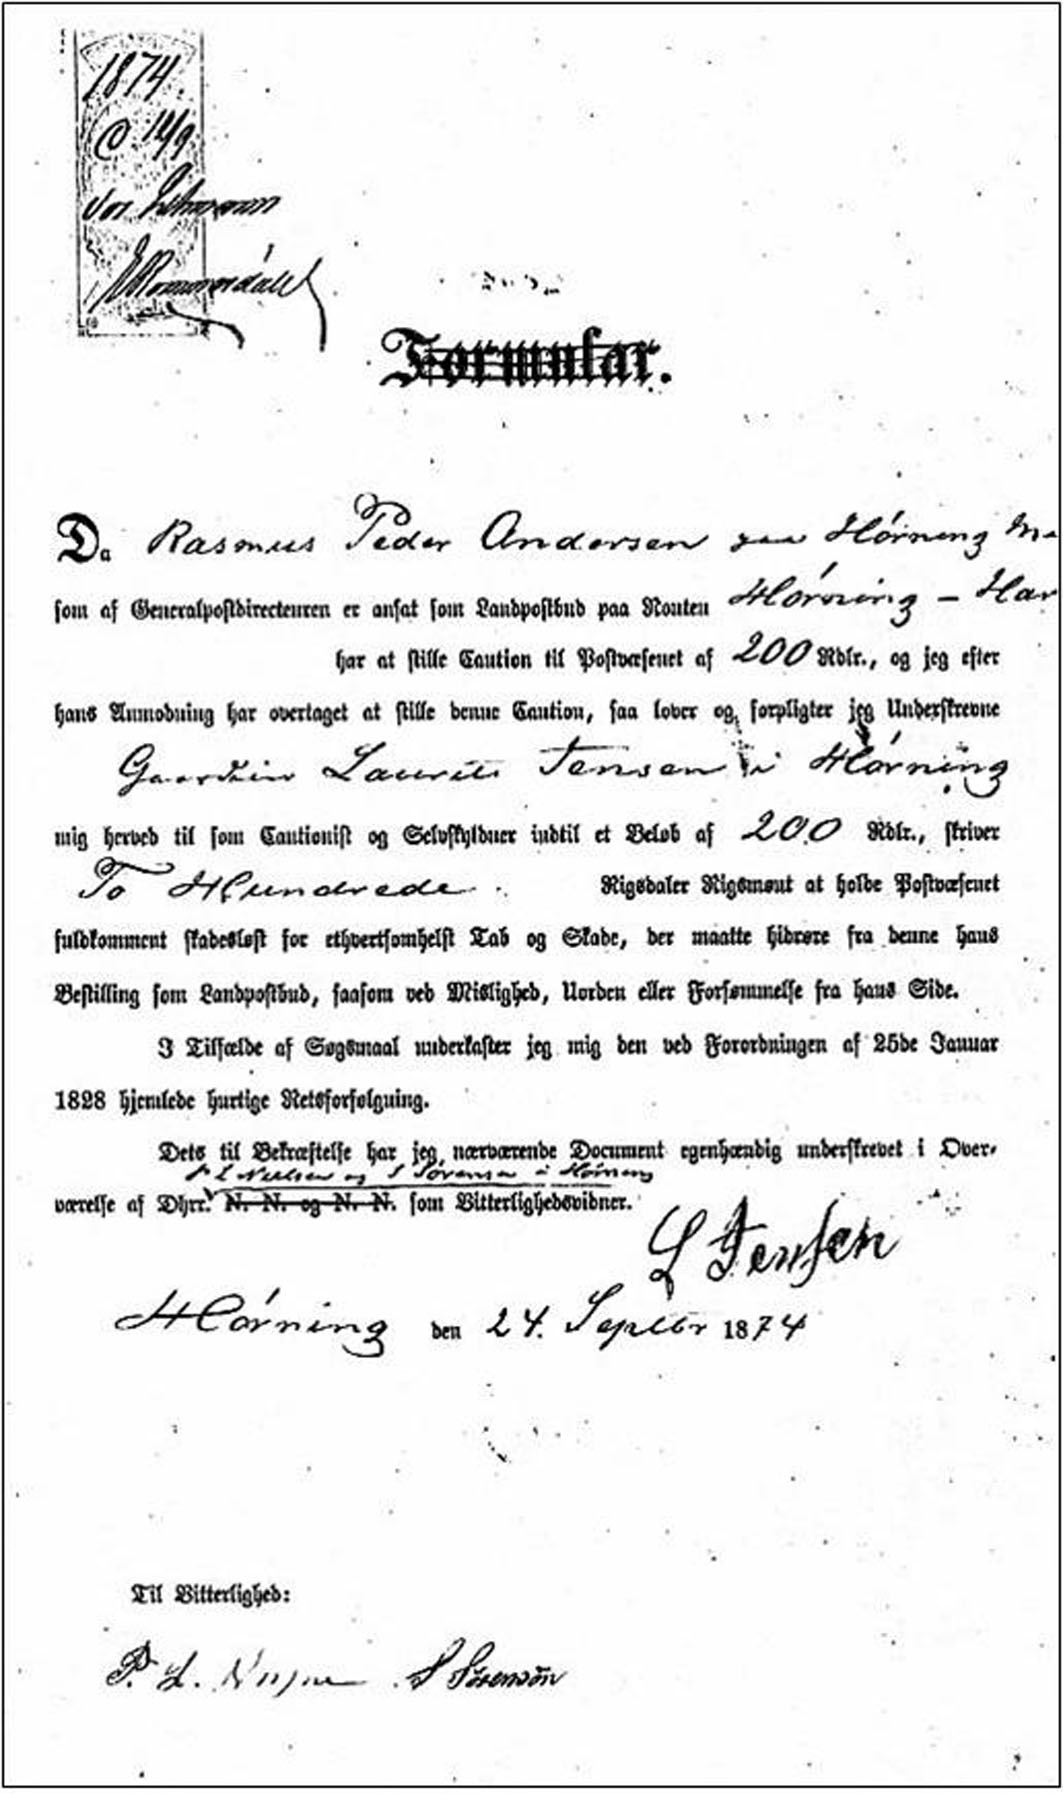 1874.
14/9
Formular.
Da Rasmus Peder Andersen paa Hørning M
som af Generalpostdirecteuren er ansat som Landpostbud paa Routen Hørning - Har
har at stille Caution til Postvæsenet af 200 Rdlr., og jeg efter
hans Anmodning har overtaget at stille denne Caution, saa lover og forpligter jeg Underskrevne
Laurits Jensen i Hørning
mig herved til som Cautionist og Selvskyldner indtil et Beløb af 200 Rdlr., skriver
To Hundrede Rigsdaler Rigsmønt at holde Postvæsenet
fuldkomment skadesløst for ethvertsomhelst Tab og Skade, der maatte hidrøre fra denne hans
Bestilling som Landpostbud, saasom ved Mislighed, Uorden eller Forsømmelse fra hans Side.
I Tilfælde af Søgsmaal underkaster jeg mig den ved Forordningen af 25de Januar
1828 hjemlede hurtige Retsforfølgning.
Dets til Bekræftelse har jeg nærværende Document egenhændig underskrevet i Over-
P L Nielsen og S Sørensen i Hørning
værelse af Dhrr. N. N. og N. N. som Vitterlighedsvidner.
L Jensen
Hørning den 24. Septbr 1874
Til Vitterlighed:
P. L. S Sørensen